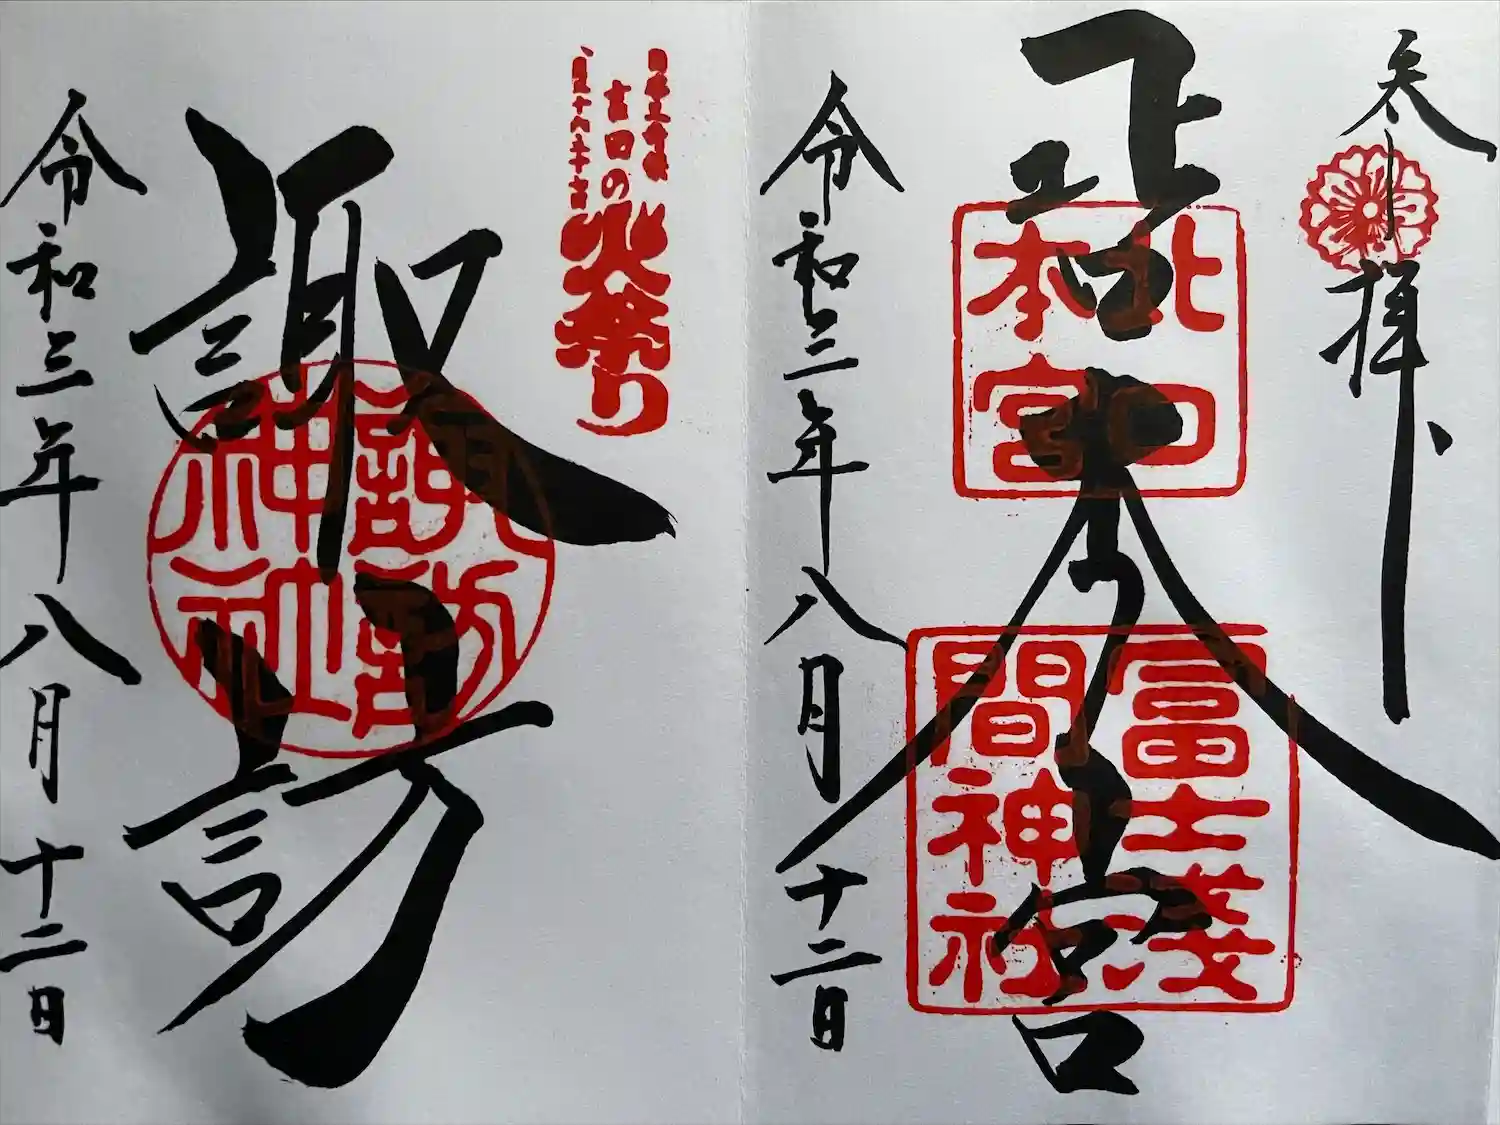 奉拝
北口本宮
北口
本宮
冨士淺
間神社
令和三年八月十二日
日本三奇祭
吉田の火祭り
諏訪
諏訪
神社
令和三年八月十二日